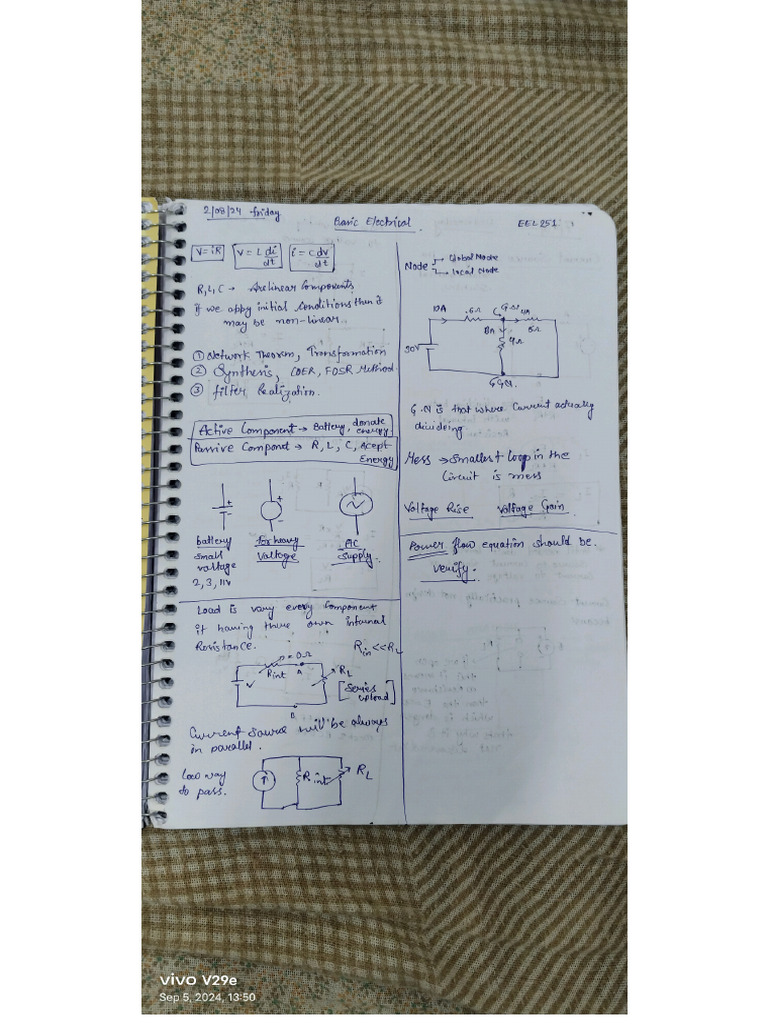 2/08/24 friday
Basic Electrical
EEL251
V = iR
V = L di/dt
i = C dv/dt
R, L, C → Are linear Components
If we appy initial conditions then it
may be non-linear.
① Network Theorem, Transformation
② Synthesis, COER, FOSR Method.
③ filter Realization.
Active Component → Battery, donate
energy
Passive Componet → R, L, C, Acept
Energy
+
+
-
battery
small
voltage
2, 3, 11v
for heavy
Voltage
AC
Supply.
Load is vary every Component
it having there own internal
Resistance.
Rin << RL
= 0Ω
Rint
A
RL
V
[Series
upload]
B
Current source will be always
in parallel.
Loo way
to pass.
Rint
RL
Node
→ Global Node
→ local Node
DA
.6Ω
G.N
8A
4Ω
6Ω
50V
G.N.
G.N is that where current actually
dividing
Mess → Smallest loop in the
Circuit is mess
Voltage Rise
Voltage Gain
Power flow equation should be.
verify.
vivo V29e
Sep 5, 2024, 13:50